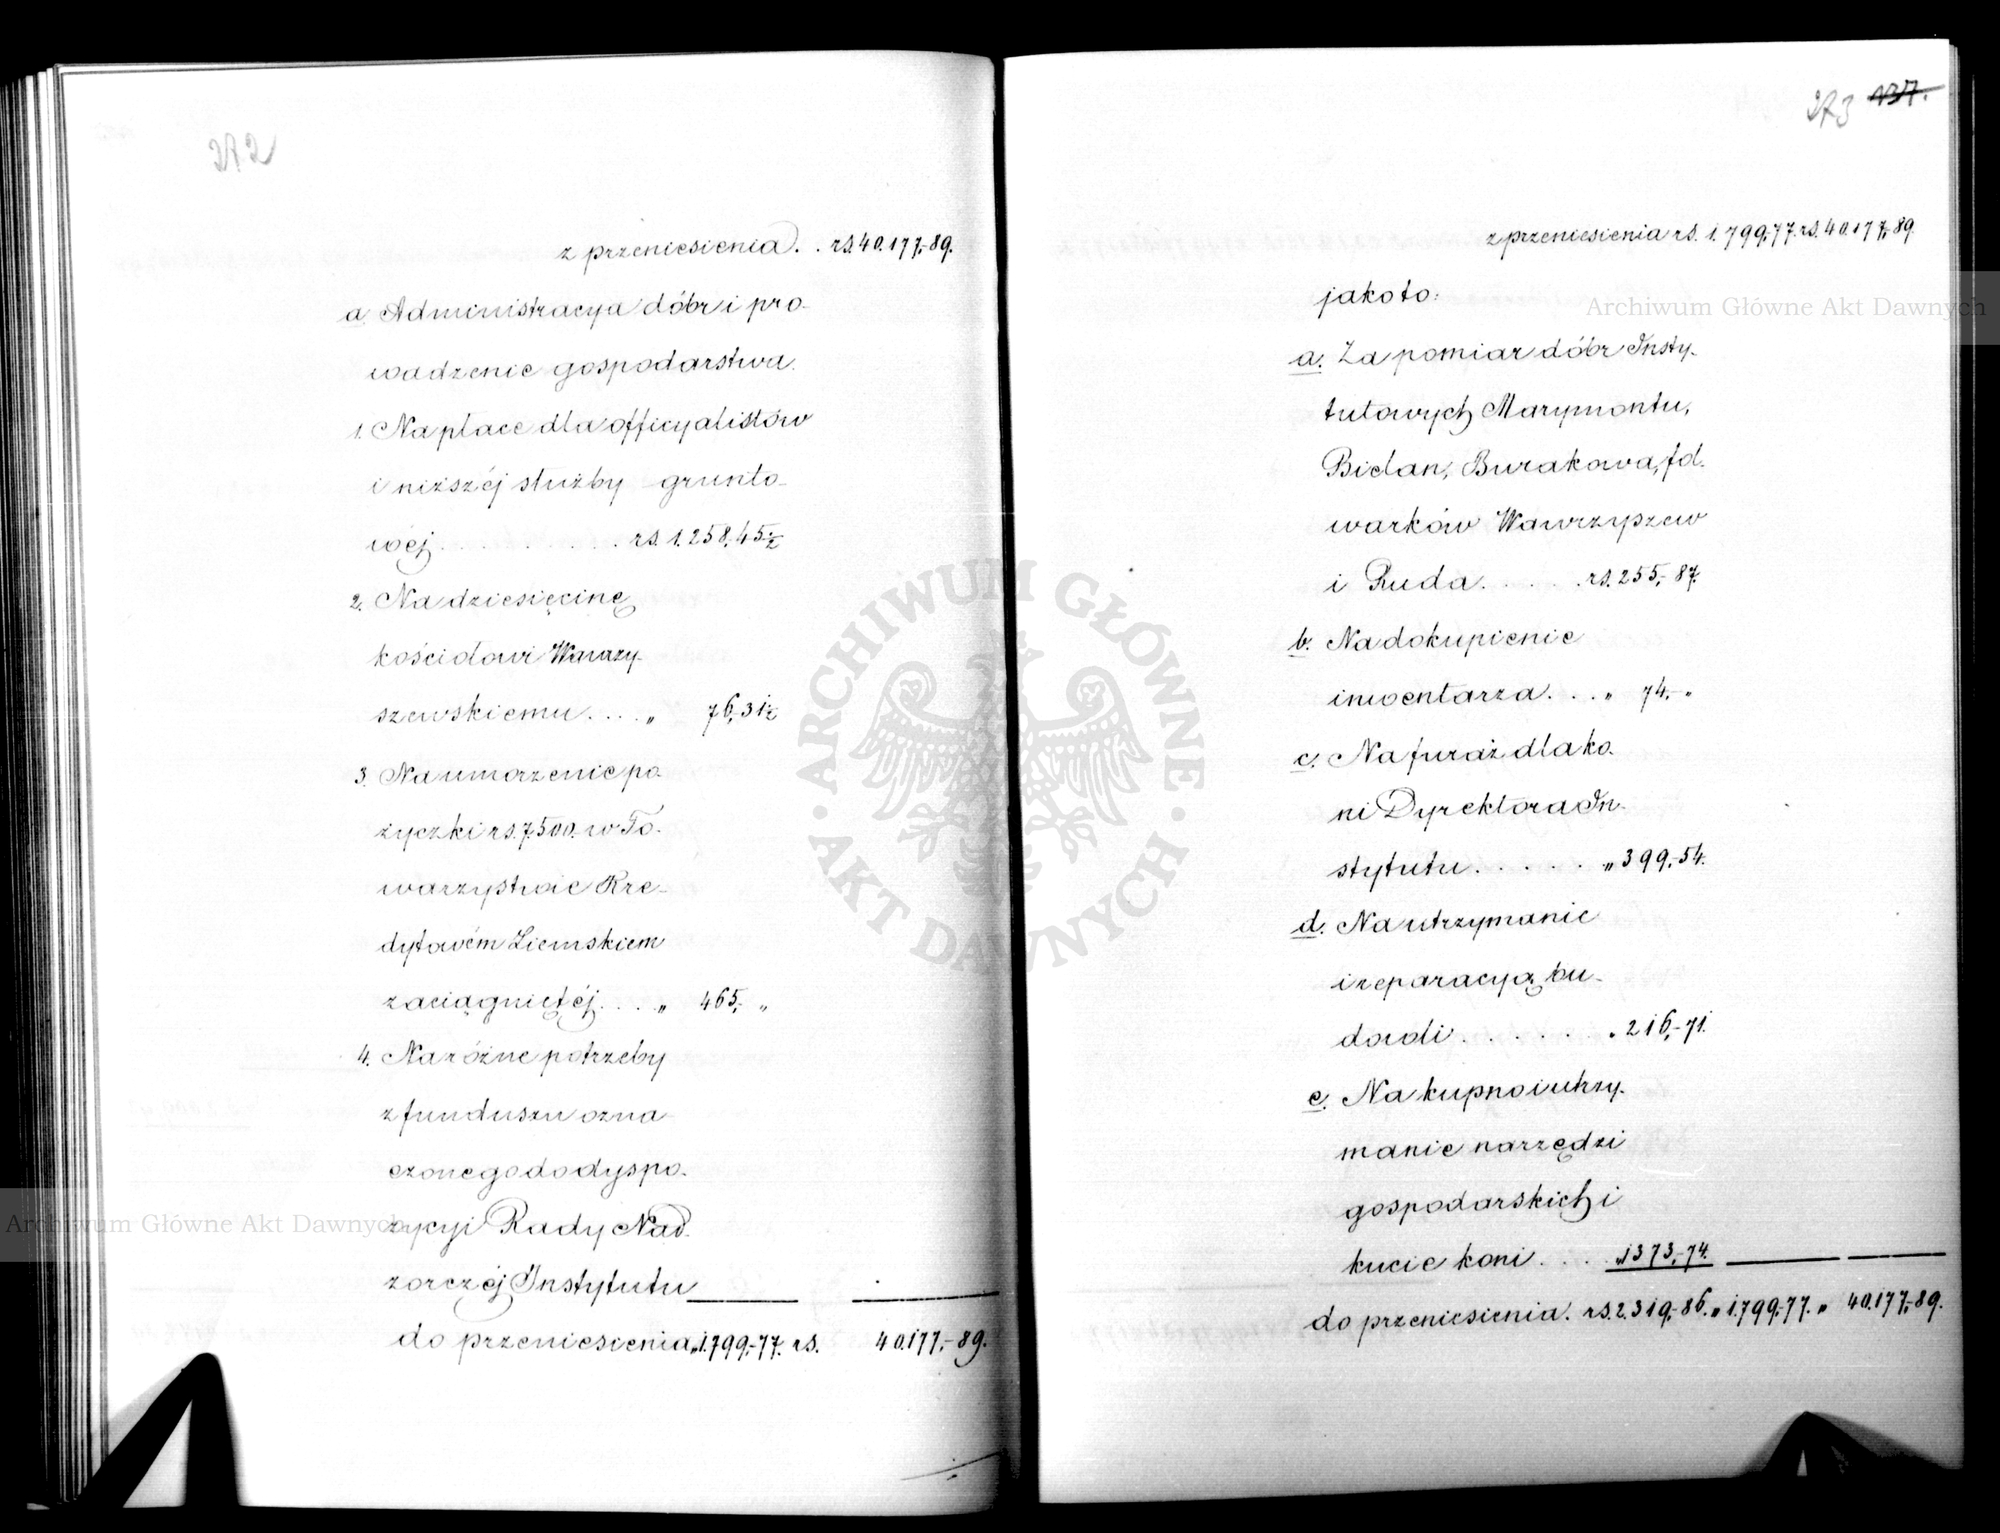 272
z przeniesienia . . rs. 40.177,-89.
a. Administracya dóbr i pro-
wadzenie gospodarstwa.
1. Na płace dla officyalistów
i niższéj służby grunto-
wéj . . . . . . . . . . rs. 1.258,45½
2. Na dziesięcinę
kościołowi Wawrzy-
szewskiemu . . . . „ 76,-31½
3. Na umorzenie po-
życzki rs. 7.500. w To-
warzystwie Kre-
dytowém Ziemskiem
zaciągniętéj . . . . „ 465,- „
4. Na różne potrzeby
z funduszu ozna-
czonego do dyspo-
zycyi Rady Nad-
zorczéj Instytutu
do przeniesienia „ 1.799,-77. rs. 40.177,-89.
273 137.
z przeniesienia rs. 1.799,-77. rs. 40.177,-89.
jako to:
a. Za pomiar dóbr Insty-
tutowych Marymontu,
Bielan, Burakowa, fol-
warków Wawrzyszew
i Ruda . . . . . . rs. 255,-87.
b. Na dokupienie
inwentarza . . . „ 74,- „
c. Na furaż dla ko-
ni Dyrektora In-
stytutu . . . . . . „ 399,-54.
d. Na utrzymanie
i reparacyą bu-
dowli . . . . . . . „ 216,-71.
e. Na kupno i utrzy-
manie narzędzi
gospodarskich i
kucie koni . . . . „ 1373,-74.
do przeniesienia . rs. 2.319,-86. „ 1.799,-77. „ 40.177,-89.
Archiwum Główne Akt Dawnych
Archiwum Główne Akt Dawnych
ARCHIWUM GŁÓWNE · AKT DAWNYCH ·